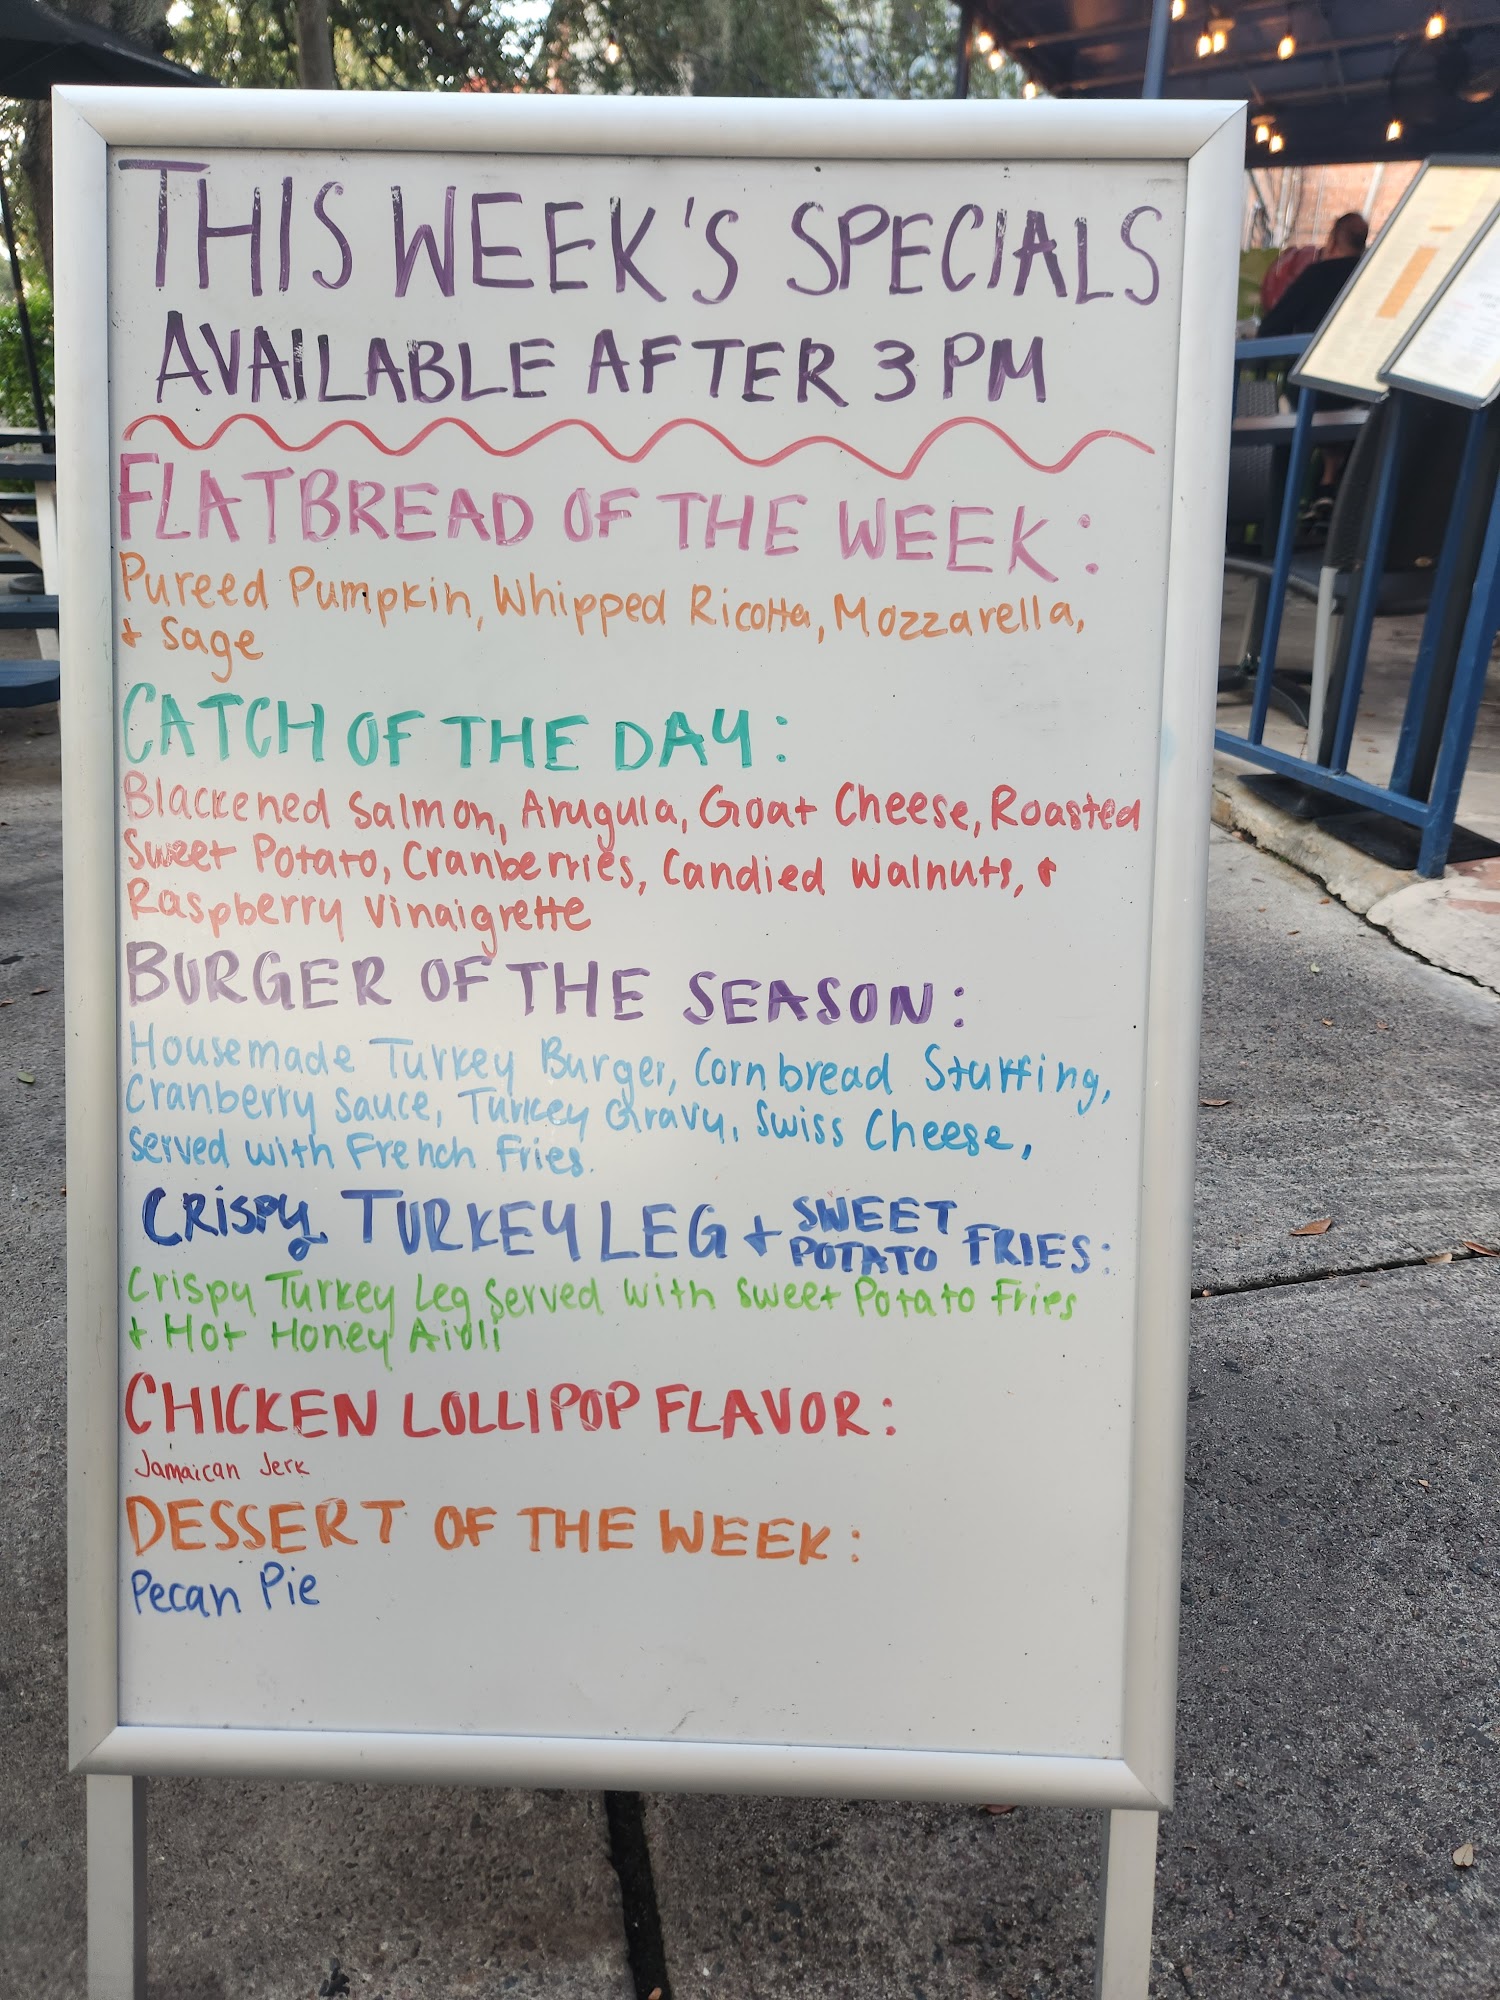 THIS WEEK'S SPECIALS
AVAILABLE AFTER 3 PM
FLATBREAD OF THE WEEK:
Pureed Pumpkin, Whipped Ricotta, Mozzarella,
+ Sage
CATCH OF THE DAY:
Blackened Salmon, Arugula, Goat Cheese, Roasted
Sweet Potato, Cranberries, Candied Walnuts, +
Raspberry Vinaigrette
BURGER OF THE SEASON:
Housemade Turkey Burger, Cornbread Stuffing,
Cranberry Sauce, Turkey Gravy, Swiss Cheese,
Served with French Fries.
CRISPY TURKEY LEG + SWEET POTATO FRIES:
Crispy Turkey Leg Served with Sweet Potato Fries
+ Hot Honey Aioli
CHICKEN LOLLIPOP FLAVOR:
Jamaican Jerk
DESSERT OF THE WEEK:
Pecan Pie